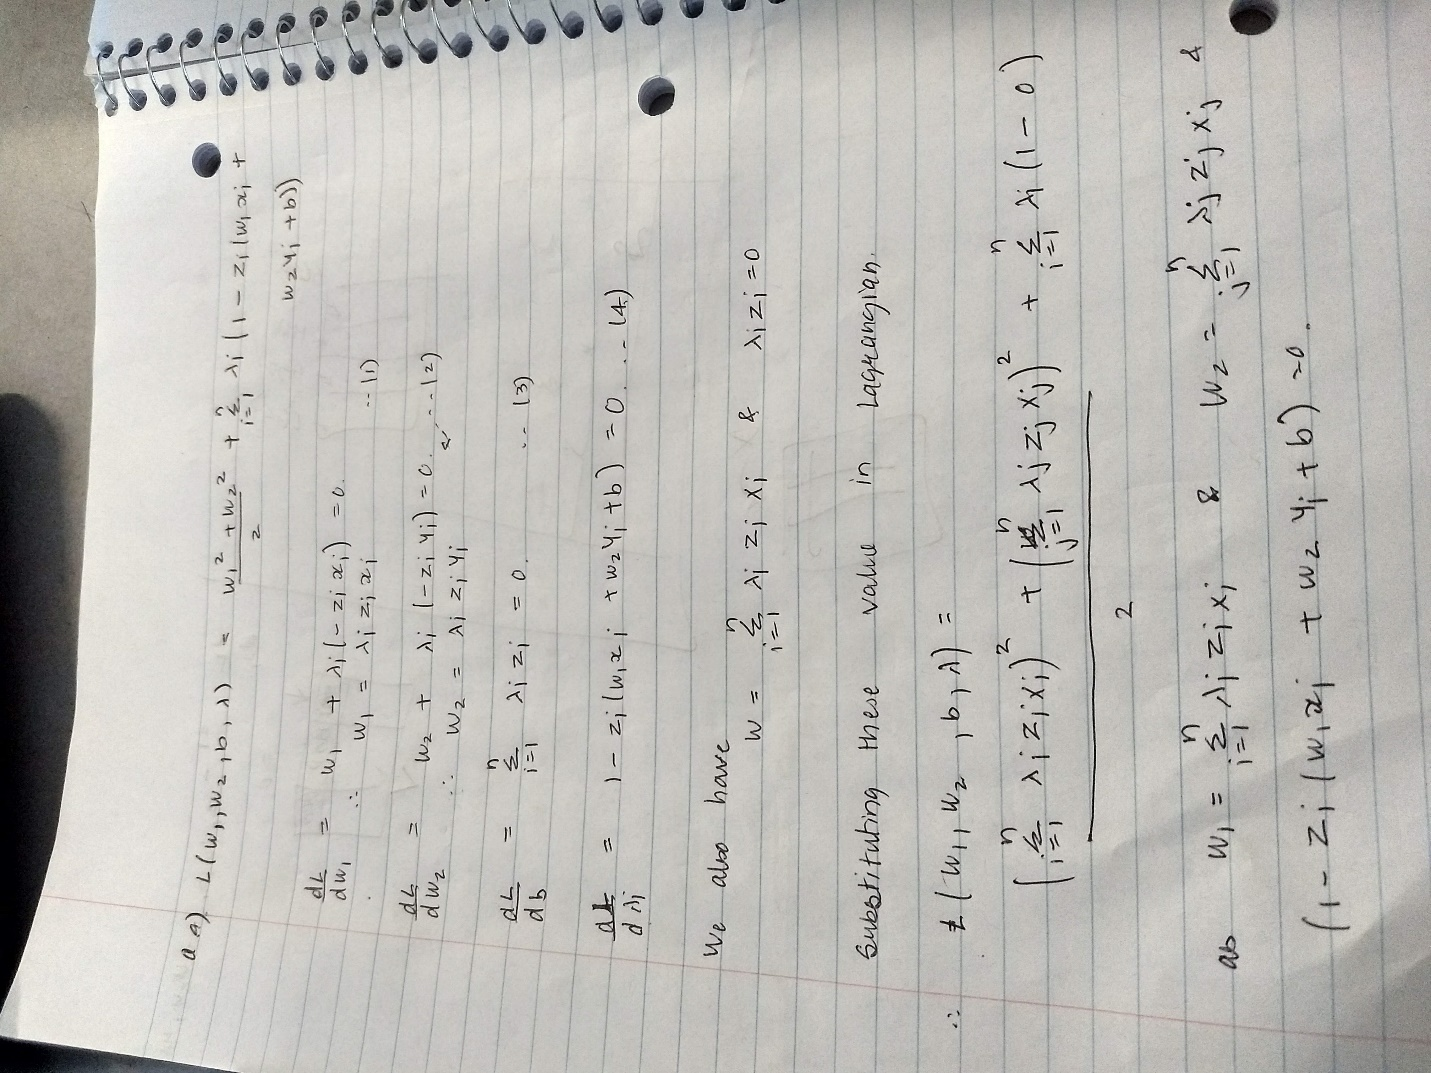 Q4) L(w₁, w₂, b, λ) = (w₁² + w₂²)/2 + Σᵢ₌₁ⁿ λᵢ (1 - zᵢ (w₁xᵢ +
w₂yᵢ + b))
dL/dw₁ = w₁ + λᵢ(-zᵢxᵢ) = 0.
∴ w₁ = λᵢ zᵢ xᵢ ..(1)
dL/dw₂ = w₂ + λᵢ (-zᵢ yᵢ) = 0. ...(2)
∴ w₂ = λᵢ zᵢ yᵢ
dL/db = Σᵢ₌₁ⁿ λᵢ zᵢ = 0. .. (3)
dL/dλᵢ = 1 - zᵢ (w₁xᵢ + w₂yᵢ + b) = 0 ... (4)
We also have
w = Σᵢ₌₁ⁿ λᵢ zᵢ xᵢ & λᵢzᵢ = 0
Substituting these value in Lagrangian.
∴ L (w₁, w₂, b, λ) =
((Σᵢ₌₁ⁿ λᵢzᵢxᵢ)² + (Σⱼ₌₁ⁿ λⱼzⱼxⱼ)²)/2 + Σᵢ₌₁ⁿ λᵢ(1 - 0)
as w₁ = Σᵢ₌₁ⁿ λᵢzᵢxᵢ & w₂ = Σⱼ₌₁ⁿ λⱼzⱼxⱼ &
(1 - zᵢ(w₁xᵢ + w₂yᵢ + b) = 0.